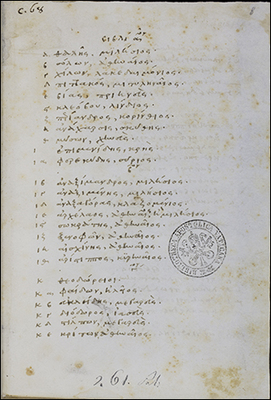 C. 68
8
α θαλῆς, μιλήσιος.
β σόλων, ἀθηναῖος.
γ χίλων, λακεδαιμόνιος.
δ πιττακός, μιτυληναῖος.
ε βίας, πριηνεύς.
ς κλεόβουλος, λίνδιος.
ζ περίανδρος, κορίνθιος.
η ἀνάχαρσις, σκύθης.
θ μύσων, χηνεύς.
ι ἐπιμενίδης, κρής
ια φερεκύδης, σύριος.
ιβ ἀναξίμανδρος, μιλήσιος.
ιγ ἀναξιμένης, μιλήσιος.
ιδ ἀναξαγόρας, κλαζομένιος.
ιε ἀρχέλαος, ἀθηναῖος ἢ μιλήσιος.
ις σωκράτης, ἀθηναῖος.
ιζ ξενοφῶν, ἀθηναῖος.
ιη αἰσχίνης, ἀθηναῖος.
ιθ ἀρίστιππος, κυρηναῖος.
κ θεοδώρειοι.
κα φαίδων, ἠλεῖος.
κβ εὐκλείδης, μεγαρεύς.
κγ διόδωρος, ἰασεύς.
κδ στίλπων, μεγαρεύς.
κε κρίτων, ἀθηναῖος.
BIBLIOTHECA APOSTOLICA VATICANA
2. 61.